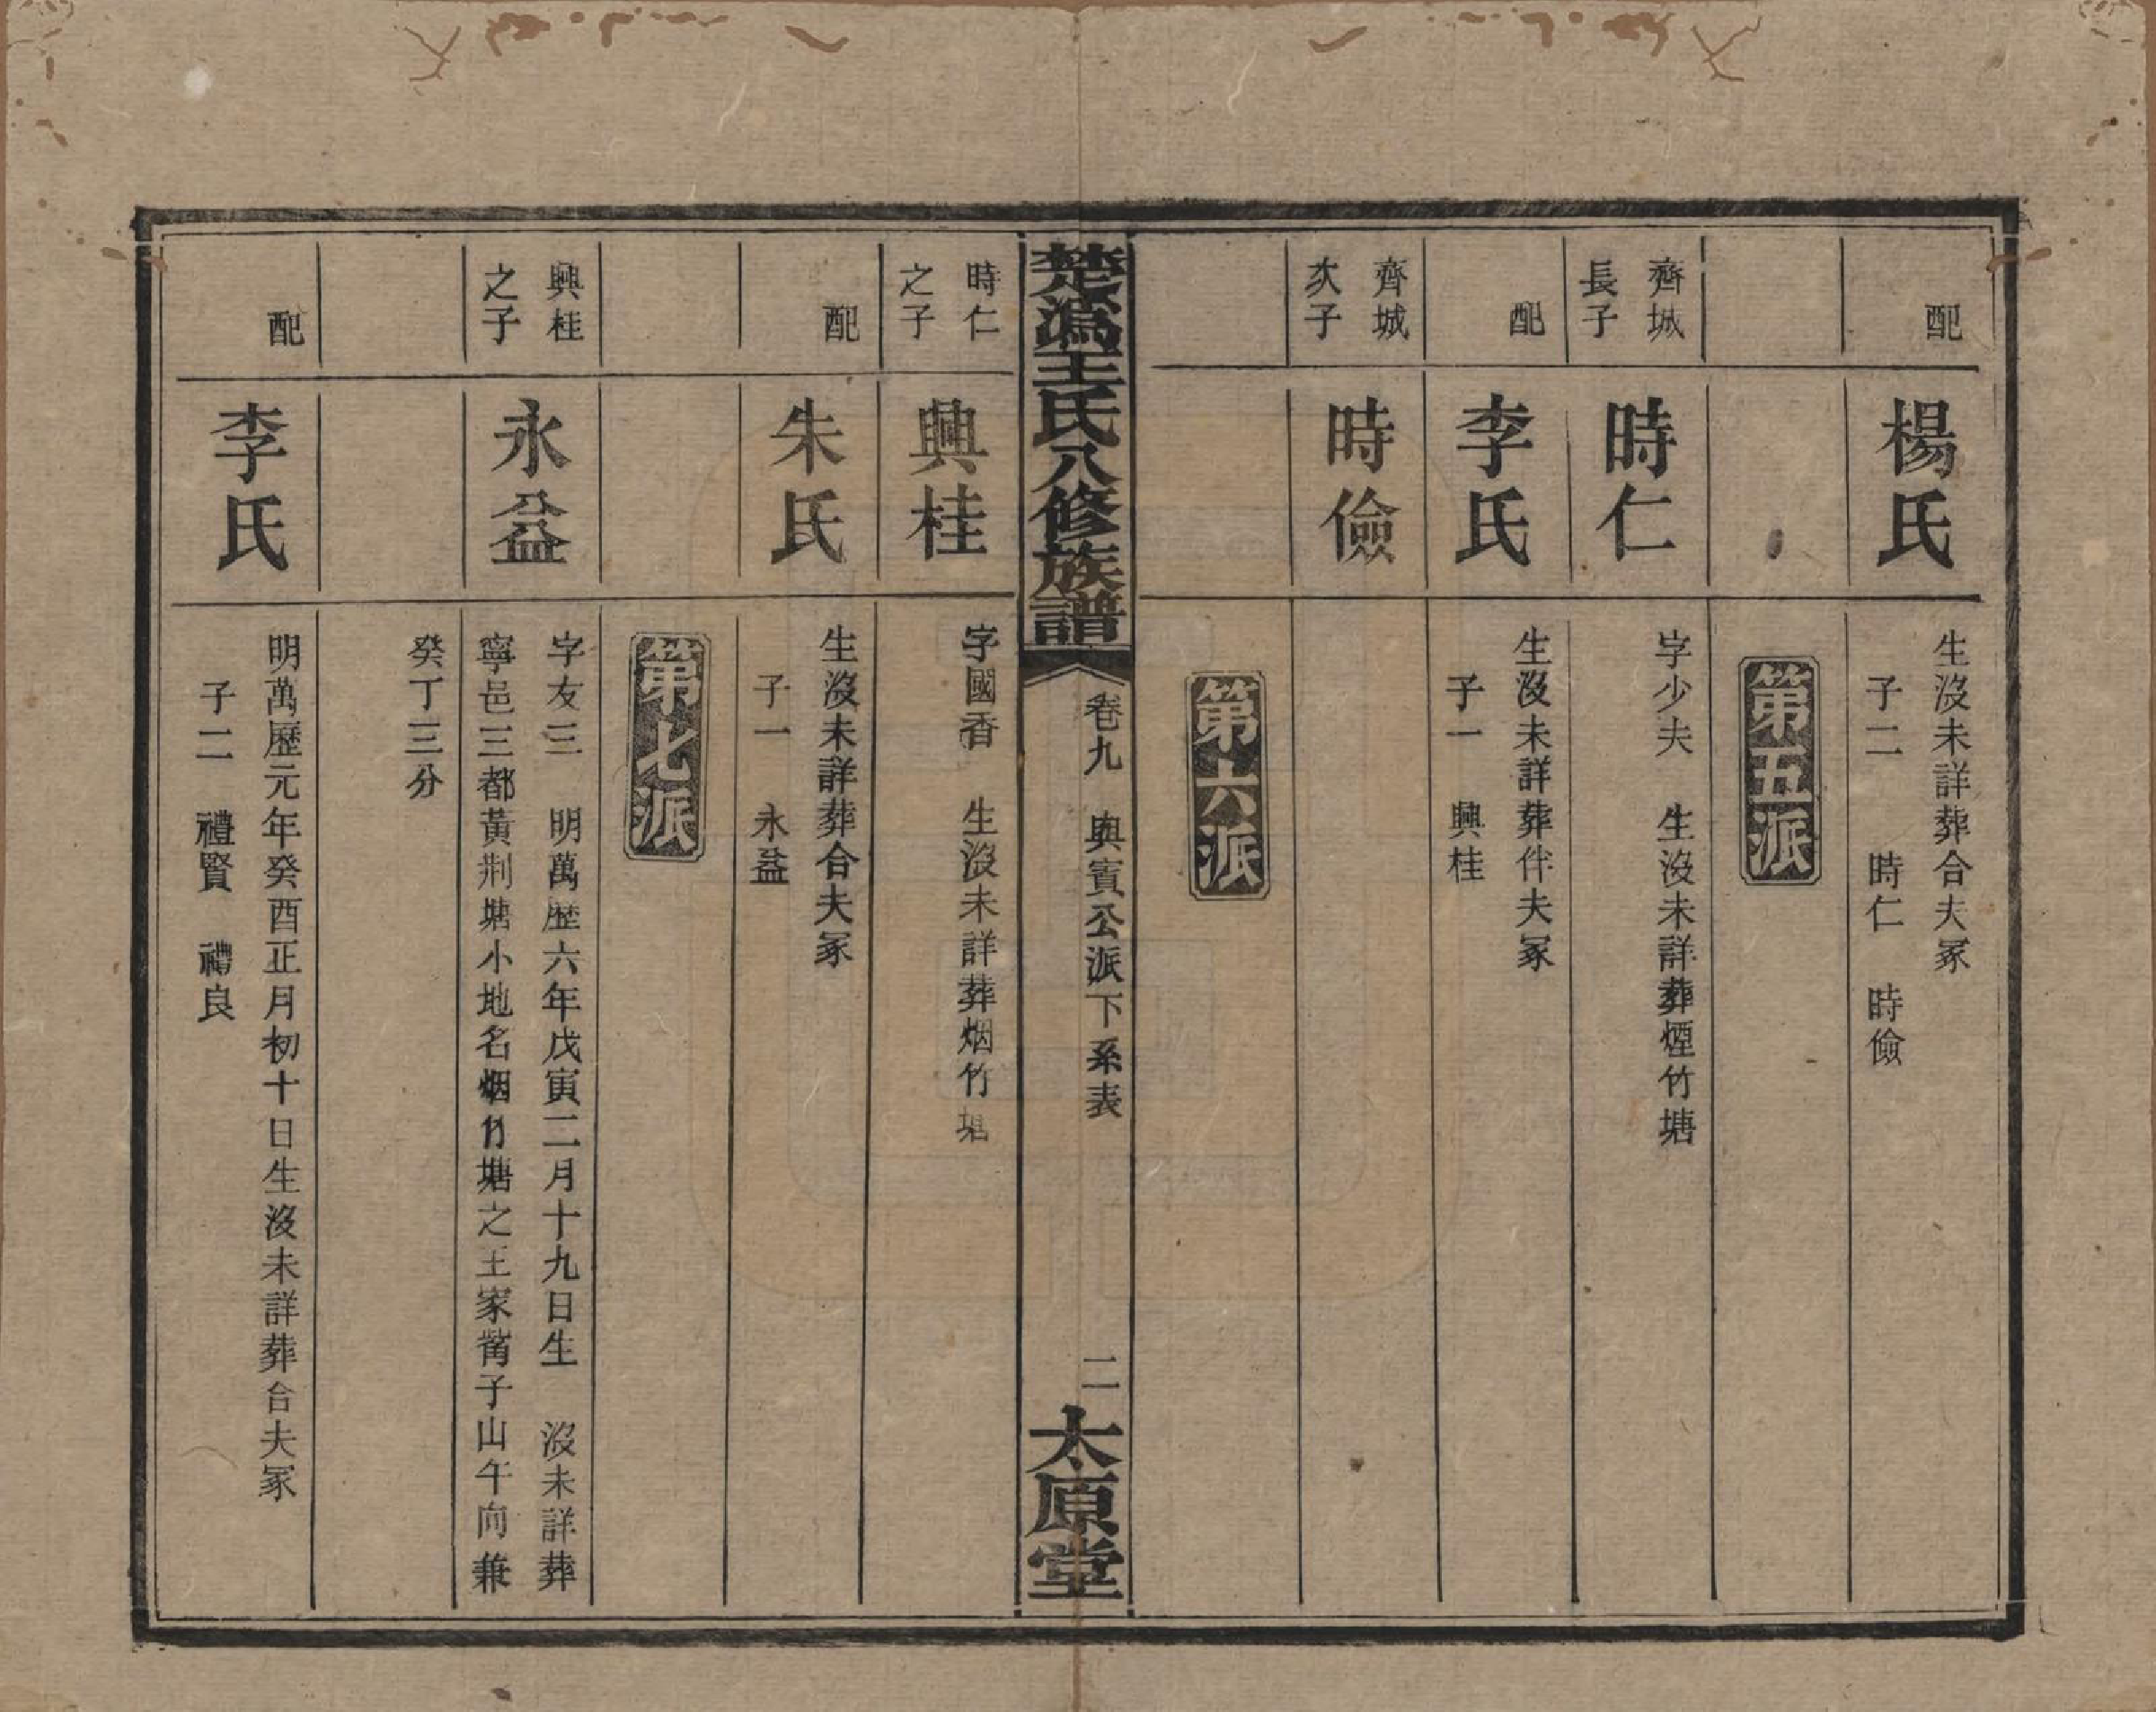 配
楊氏
生沒未詳葬合夫冢
子二　時仁　時儉
第五派
齊城
長子
時仁
字少夫　生沒未詳葬煙竹塘
配
李氏
生沒未詳葬伴夫冢
子一　興桂
齊城
次子
時儉
第六派
楚溈王氏八修族譜
卷九　與賓公派下系表
二
太原堂
時仁
之子
興桂
字國香　生沒未詳葬烟竹塘
配
朱氏
生沒未詳葬合夫冢
子一　永益
第七派
興桂
之子
永益
字友三　明萬歷六年戊寅二月十九日生　沒未詳葬
寧邑三都黃荆塘小地名烟竹塘之王家嵴子山午向兼
癸丁三分
配
李氏
明萬歷元年癸酉正月初十日生沒未詳葬合夫冢
子二　禮賢　禮良